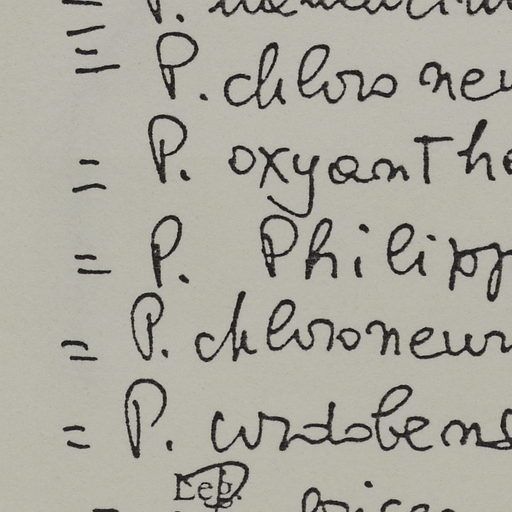 ≡ P. chloroneu
= P. oxyanthe
= P. Philipp
= P. chloroneur
= P. cordobens
Leg.